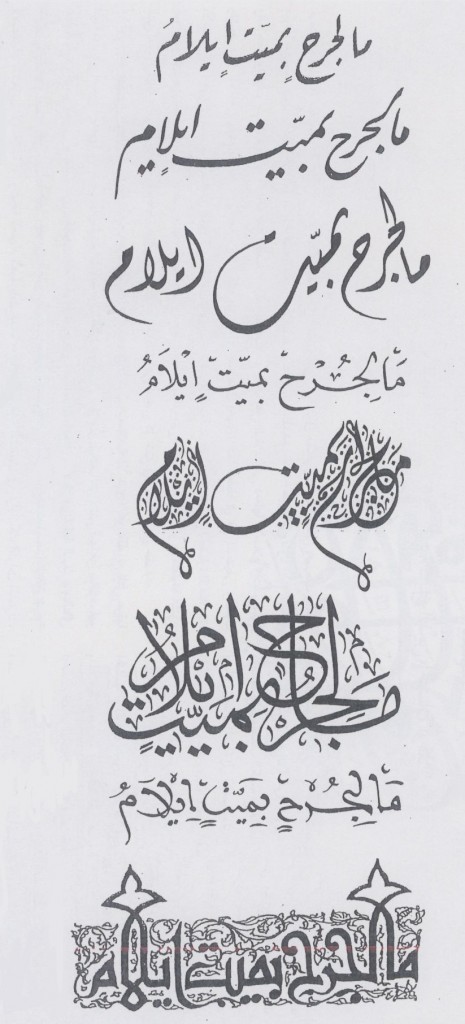 ما لجرح بميّتٍ إيلامُ
ما لجرح بميّت ايلام
ما لجرح بميّت ايلام
مَا لِجُرْحٍ بميّتٍ إيْلَامُ
ما لجرح بميّتٍ إيلام
ما لجرح بميّتٍ إيلامُ
مَا لِجُرْحٍ بِمَيّتٍ إِيْلَامُ
ما لجرح بميت ايلام